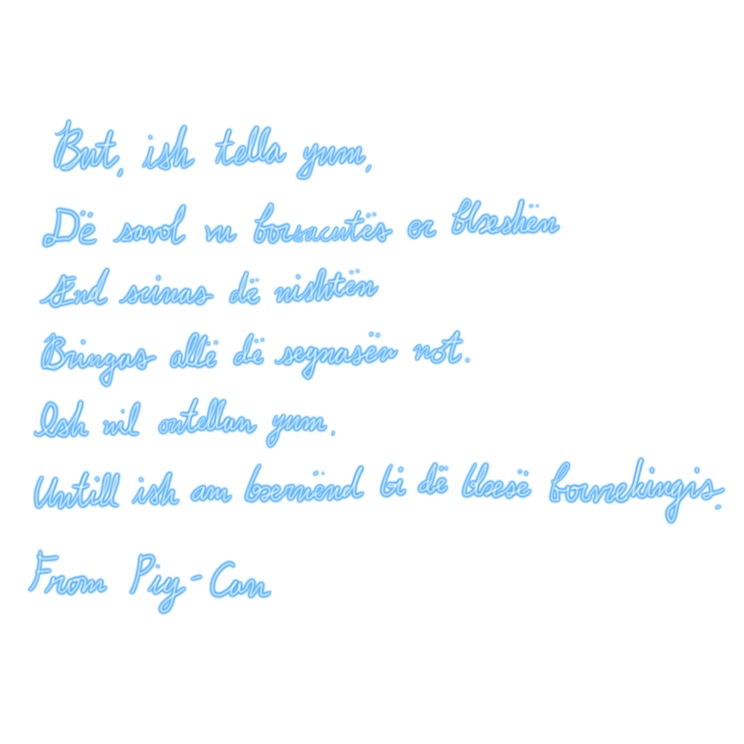 But, ish tella yum,
Dë savol vu borsacutës er blæshën
Ænd scinas dë nishtën
Bringas allë dë segnasën not.
Ish nil ontellan yum,
Untill ish am bærnënd bi dë blœsë bovrekingis.
From Piy-Can